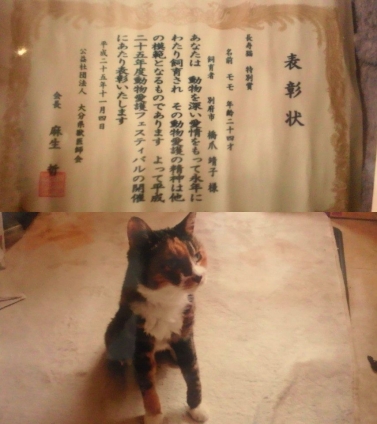 表彰状
長寿猫 特別賞
名前 モモ 年齢二十四才
飼育者 別府市 橋爪 靖子 様
あなたは 動物を深い愛情をもって永年に
わたり飼育され その動物愛護の精神は他
の模範となるものであります よって平成
二十五年度動物愛護フェスティバルの開催
にあたり表彰いたします
平成二十五年十一月四日
公益社団法人 大分県獣医師会
会長 麻生 哲